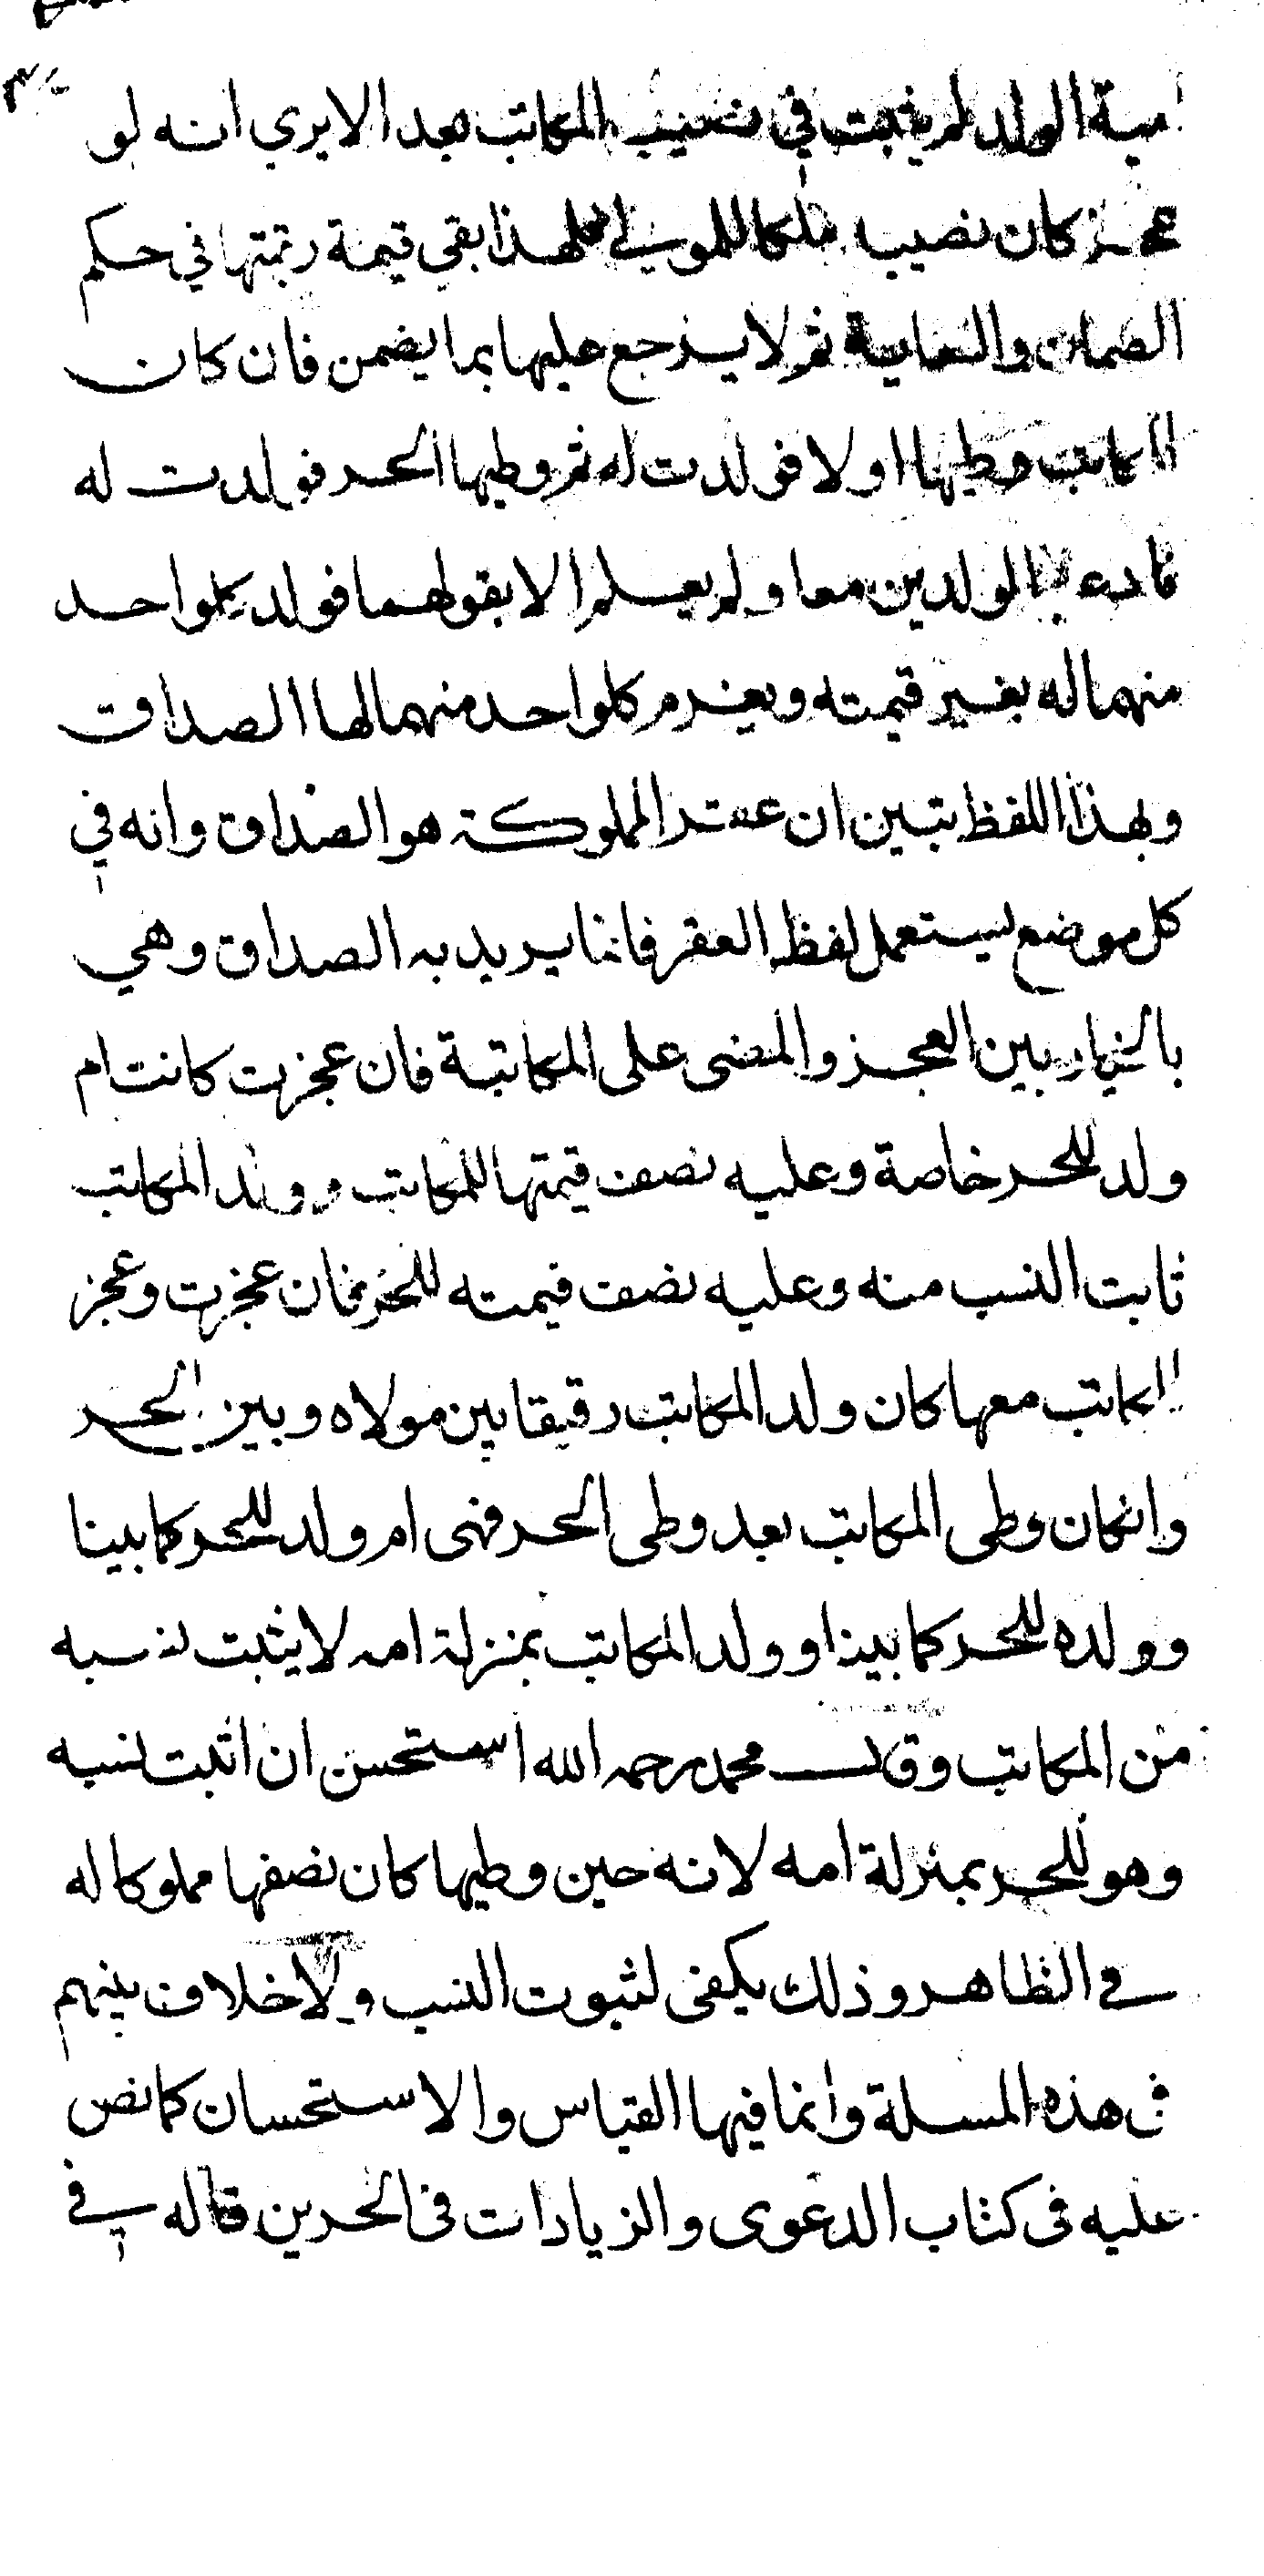 امية الولد لم يثبت في نصيب المكاتب بعد الا يري انه لو
عجز كان نصيبه ملكا للمولي فلهذا بقي قيمة رقبتها في حكم
الضمان والسعاية ثم لا يرجع عليها بما يضمن فان كان
المكاتب وطيها اولا فولدت له ثم وطيها الحر فولدت له
فادعيا الولدين معا ولم يعلم الا بقولهما فولد كلواحد
منهما له بغير قيمته ويغرم كلواحد منهما لها الصداق
وبهذا اللفظ تبين ان عقر المملوكة هو الصداق وانه في
كل موضع يستعمل لفظ العقر فانما يريد به الصداق وهي
بالخيار بين العجز والمضى على المكاتبة فان عجزت كانت ام
ولد للحر خاصة وعليه نصف قيمتها للمكاتب وولد المكاتب
ثابت النسب منه وعليه نصف قيمته للحر فان عجزت وعجز
المكاتب معها كان ولد المكاتب رقيقا بين مولاه وبين الحر
وانكان وطى المكاتب بعد وطى الحر فهى ام ولد للحر كما بينا
وولده للحر كما بينا وولد المكاتب بمنزلة امه لا يثبت نسبه
من المكاتب وقال محمد رحمه الله استحسن ان اثبت نسبه
وهو للحر بمنزلة امه لانه حين وطيها كان نصفها مملوكا له
في الظاهر وذلك يكفى لثبوت النسب ولا خلاف بينهم
فى هذه المسلة وانما فيها القياس والاستحسان كما نص
عليه فى كتاب الدعوى والزيادات فى الحرين قاله في